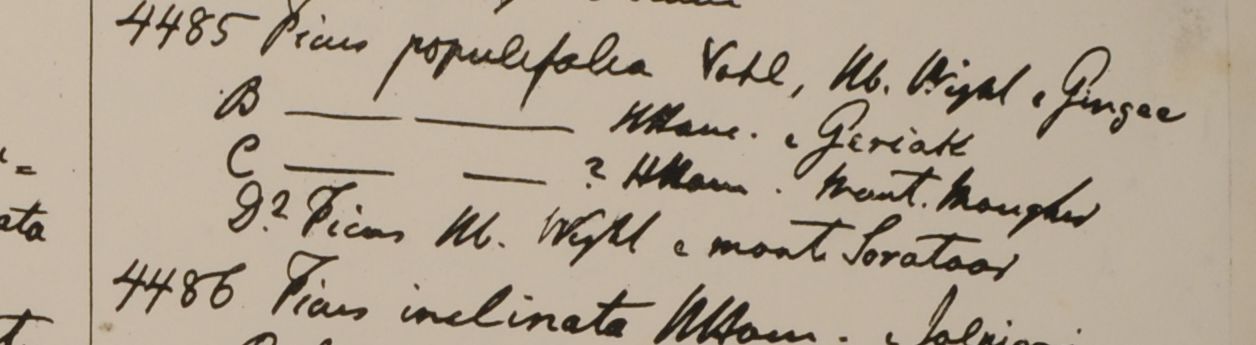 4485 Ficus populifolia Vahl, Hb. Wight e Gingee
B — — HHam. e Geriah
C — — ? HHam. mont.
D? Ficus Hb. Wight e mont.
4486 Ficus inclinata HHam.
ata